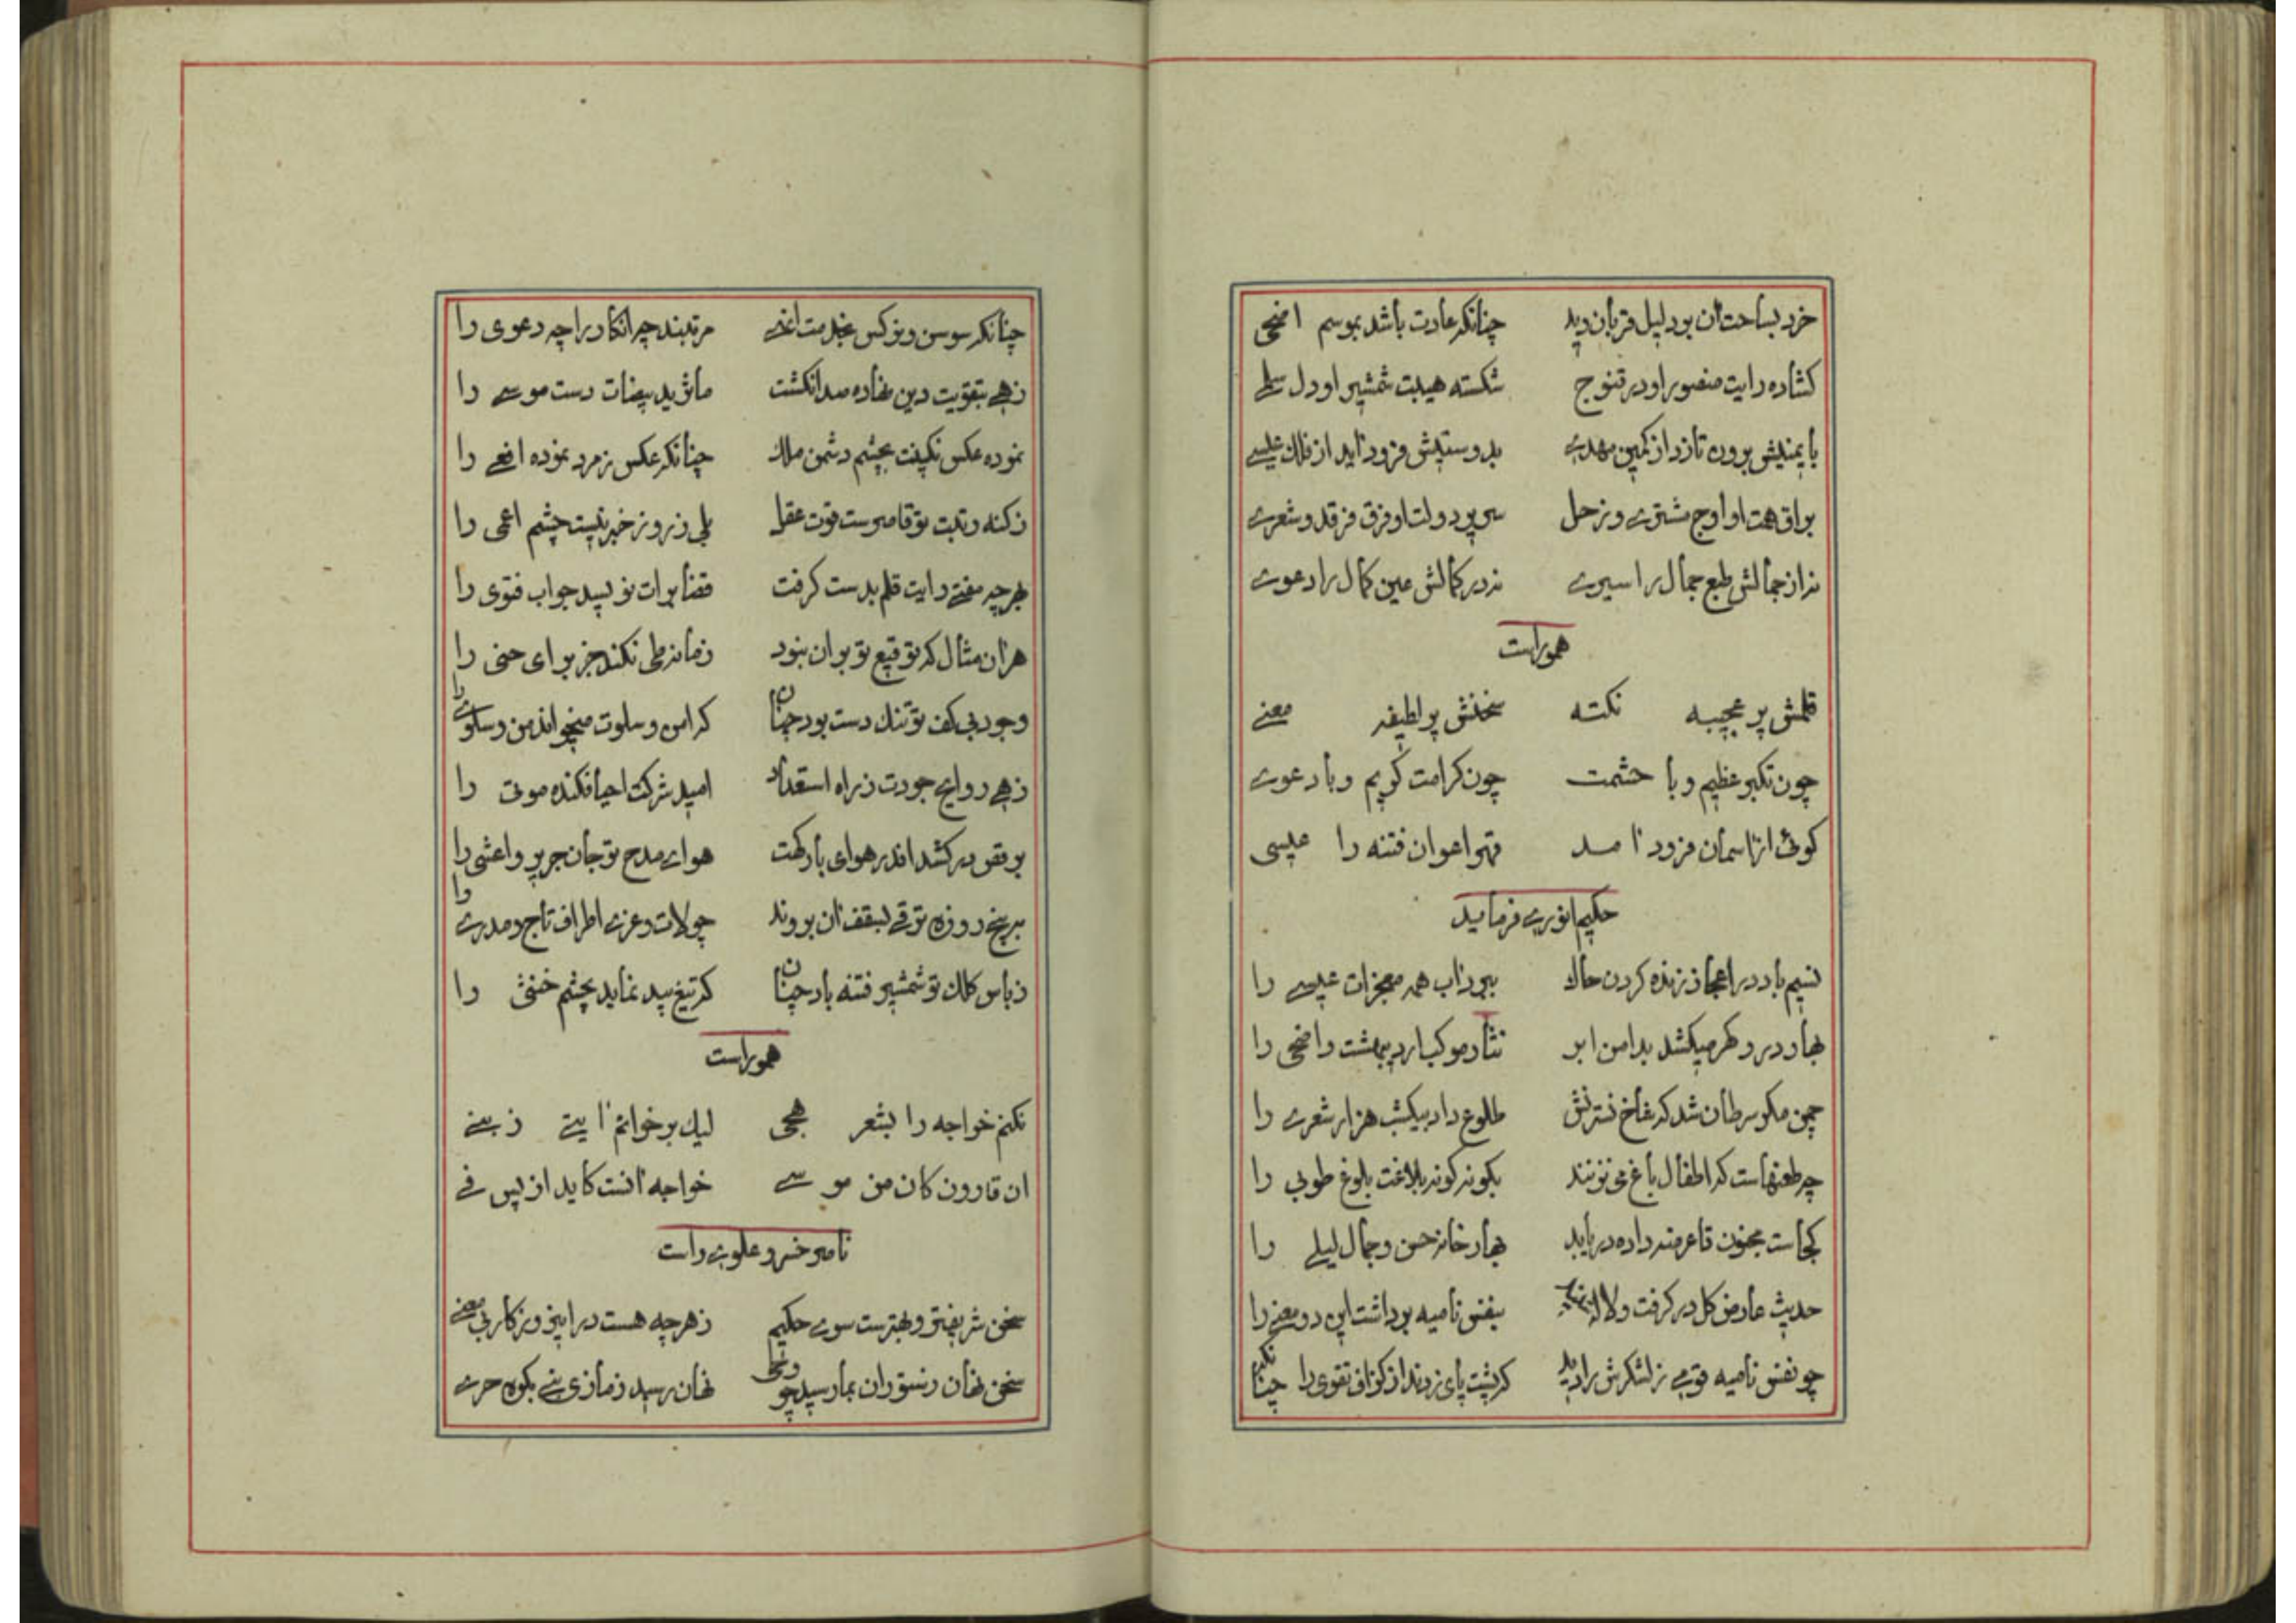 خرد بساحت آن بود لیل قربان دید چنانکه عادت باشد بموسم اضحی
کشاده رایت منصور او در قنوج شکسته هیبت شمشیر او دل سلمی
بایمنیش برون تازد از کمین مهدی بدوستیش فرود آید از فلک عیسی
براق همت او اوج مشتری و زحل سریر دولت او فرق فرقد و شعری
نه از جمالش طبع جمال را سیری نه در کمالش عین کمال را دعوی
هموراست
قلمش پر عجیبه نکته سخنش پر لطیفه معنی
چون تکبر عظیم و با حشمت چون کرامت کریم و با دعوی
کوئی از آسمان فرود آمد قهر اعوان فتنه را عیسی
حکیم انوری فرماید
نسیم باد در اعجاز زنده کردن خاک ببرد آب همه معجزات عیسی را
بهار در و گهر میکشد بدامن ابر نثار موکب اردیبهشت و اضحی را
چمن مگر سرطان شد که شاخ نسترنش طلوع داد بیکشب هزار شعری را
چه طعنهاست که اطفال باغ می نزنند بگونه گونه بلاغت بلوغ طوبی را
کجاست مجنون تا عرضه داده دریابد بهار خانه حسن و جمال لیلی را
حدیث عارض گل در گرفت و لاله بنفس نامیه برداشت این دو معنی را
چو نفس نامیه قومی ز لشکرش را دید که پشت پای زدند از گزاف تقوی را
چنانکه سوسن و نرگس بخدمت مرتبند چه انکار را چه دعوی را
زهی بتقویت دین نهاده صد انگشت مآثر ید بیضات دست موسی را
نموده عکس نگینت بچشم دشمن ملک چنانکه عکس زمرد نموده افعی را
ز کنه رتبت تو قاصرست قوت عقل بلی ز روز خبر نیست چشم اعمی را
بهرچه مفتی رایت قلم بدست گرفت قضا برات نویسد جواب فتوی را
هر آن مثال که توقیع تو بر آن نبود زمانه طی نکند جز برای حنی را
وجود بی کف تو تنک دست بود چنان که امن و سلوت میخواند من و سلوی را
زهی روایح جودت ز راه استعداد امید شرکت احیا فکنده موتی را
برقص در کشد اندر هوای بارگهت هوای مدح تو جان جریر و اعشی را
به پنج روزه ترقی بسقف آن بردند چو لات و عزی اطراف تاج و مدری را
ز باس کلک تو شمشیر فتنه باد چنان که تیغ بید نماید بچشم خنثی را
هموراست
نکنم خواجه را بشعر هجی لیک برخوانم آیتی ز نبی
ان قارون کان من موسی خواجه آنست کاید از پس فی
ناصر خسرو علوی راست
سخن شریفتر و بهترست سوی حکیم ز هرچه هست در این و ز کار بی معنی